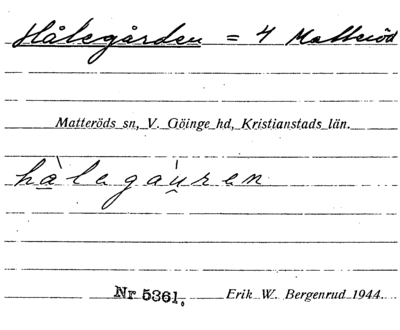 Hålegården = 4 Matteröd
Matteröds sn, V. Göinge hd, Kristianstads län.
hàlegau̯ren
Nr 5361. Erik W. Bergenrud 1944.